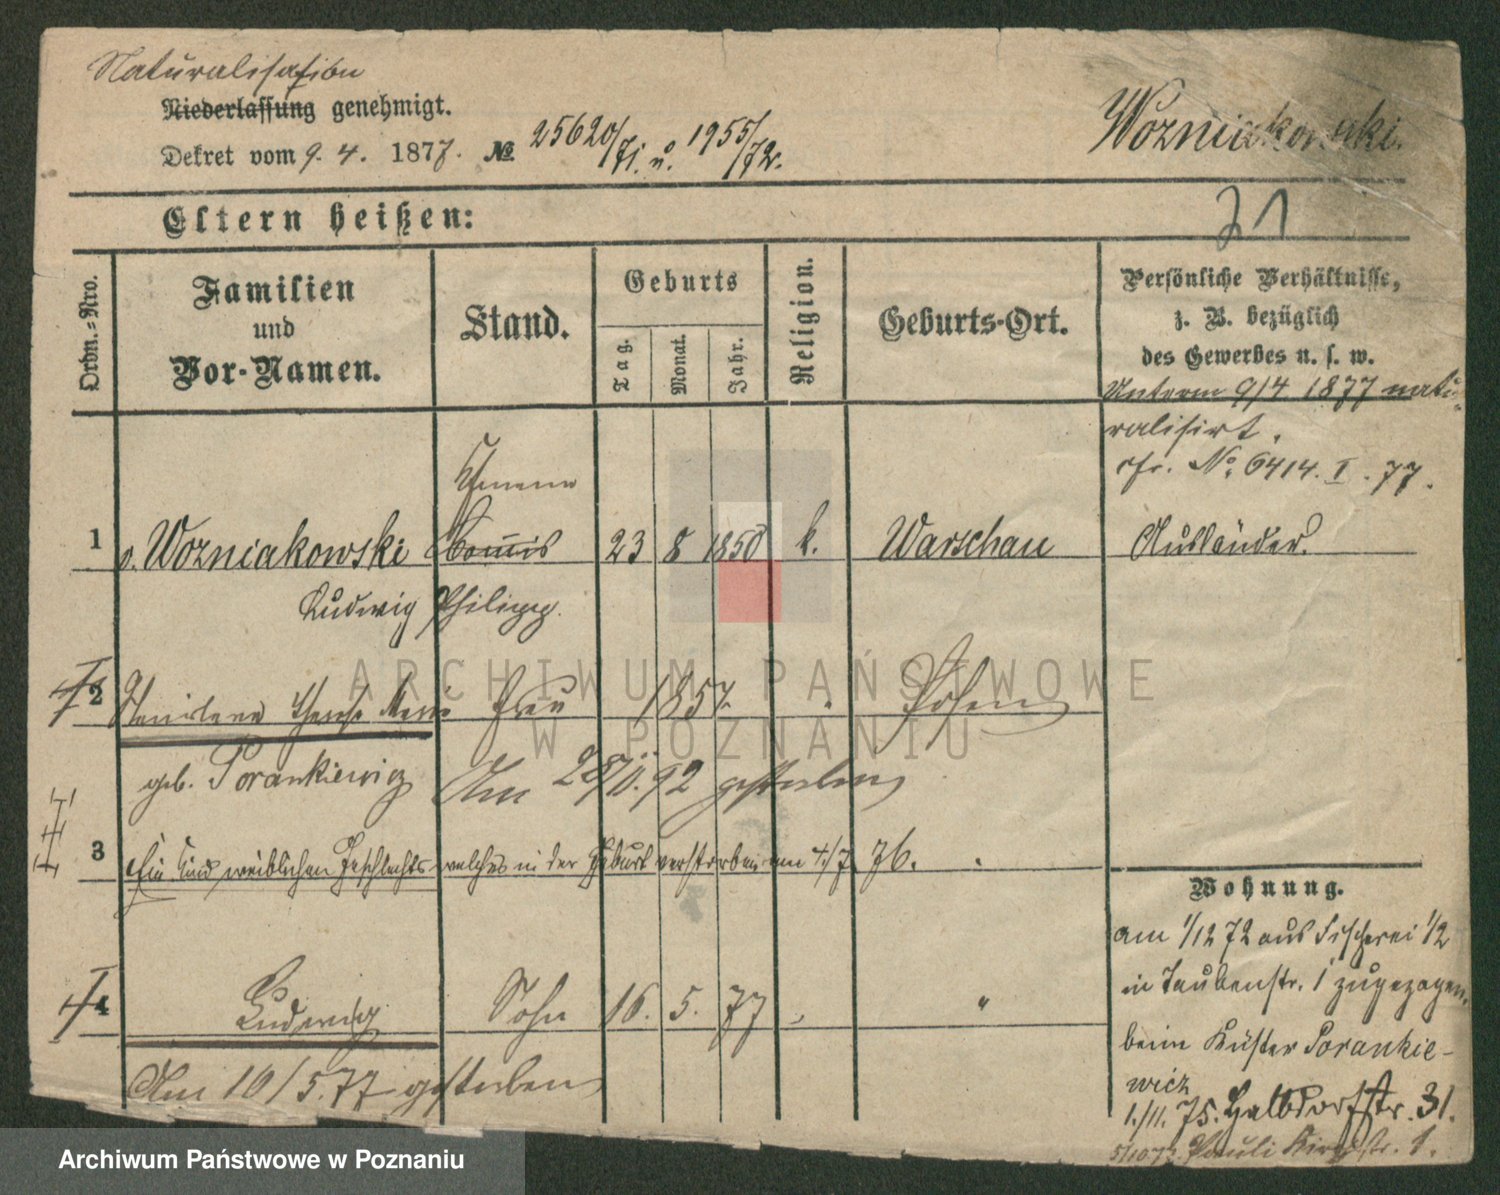 Naturalisation
Niederlassung genehmigt.
Dekret vom 9. 4. 1877. № 25620/71. u. 1955/72.
Wozniakowski.
Eltern heißen:
71
Ordn.-Nro.
Familien
und
Vor-Namen.
Stand.
Geburts
Tag.
Monat.
Jahr.
Religion.
Geburts-Ort.
Persönliche Verhältnisse,
z. B. bezüglich
des Gewerbes u. s. w.
Unterm 9/4 1877 natu-
ralisirt.
cfr. No. 6414. I. 77.
1 v. Wozniakowski Commis 23 8 1850 k. Warschau Ausländer.
Ludwig Philipp.
2 Frau 1857. Posen
geb. Porankiewicz Am 28/11.92 gestorben
3 Ein Kind weiblichen Geschlechts welches in der Geburt verstorben am 4./7. 76.
4 Ludwig Sohn 16. 5. 77 "
Am 16/5.77 gestorben
Wohnung.
am 1/12 72 aus Fischerei 1/2
in Taubenstr. 1 zugezogen.
beim Küster Porankie-
wicz
1./11. 75. Halbdorfstr. 31.
Pauli Kirchstr. 1.
ARCHIWUM PAŃSTWOWE
W POZNANIU
Archiwum Państwowe w Poznaniu